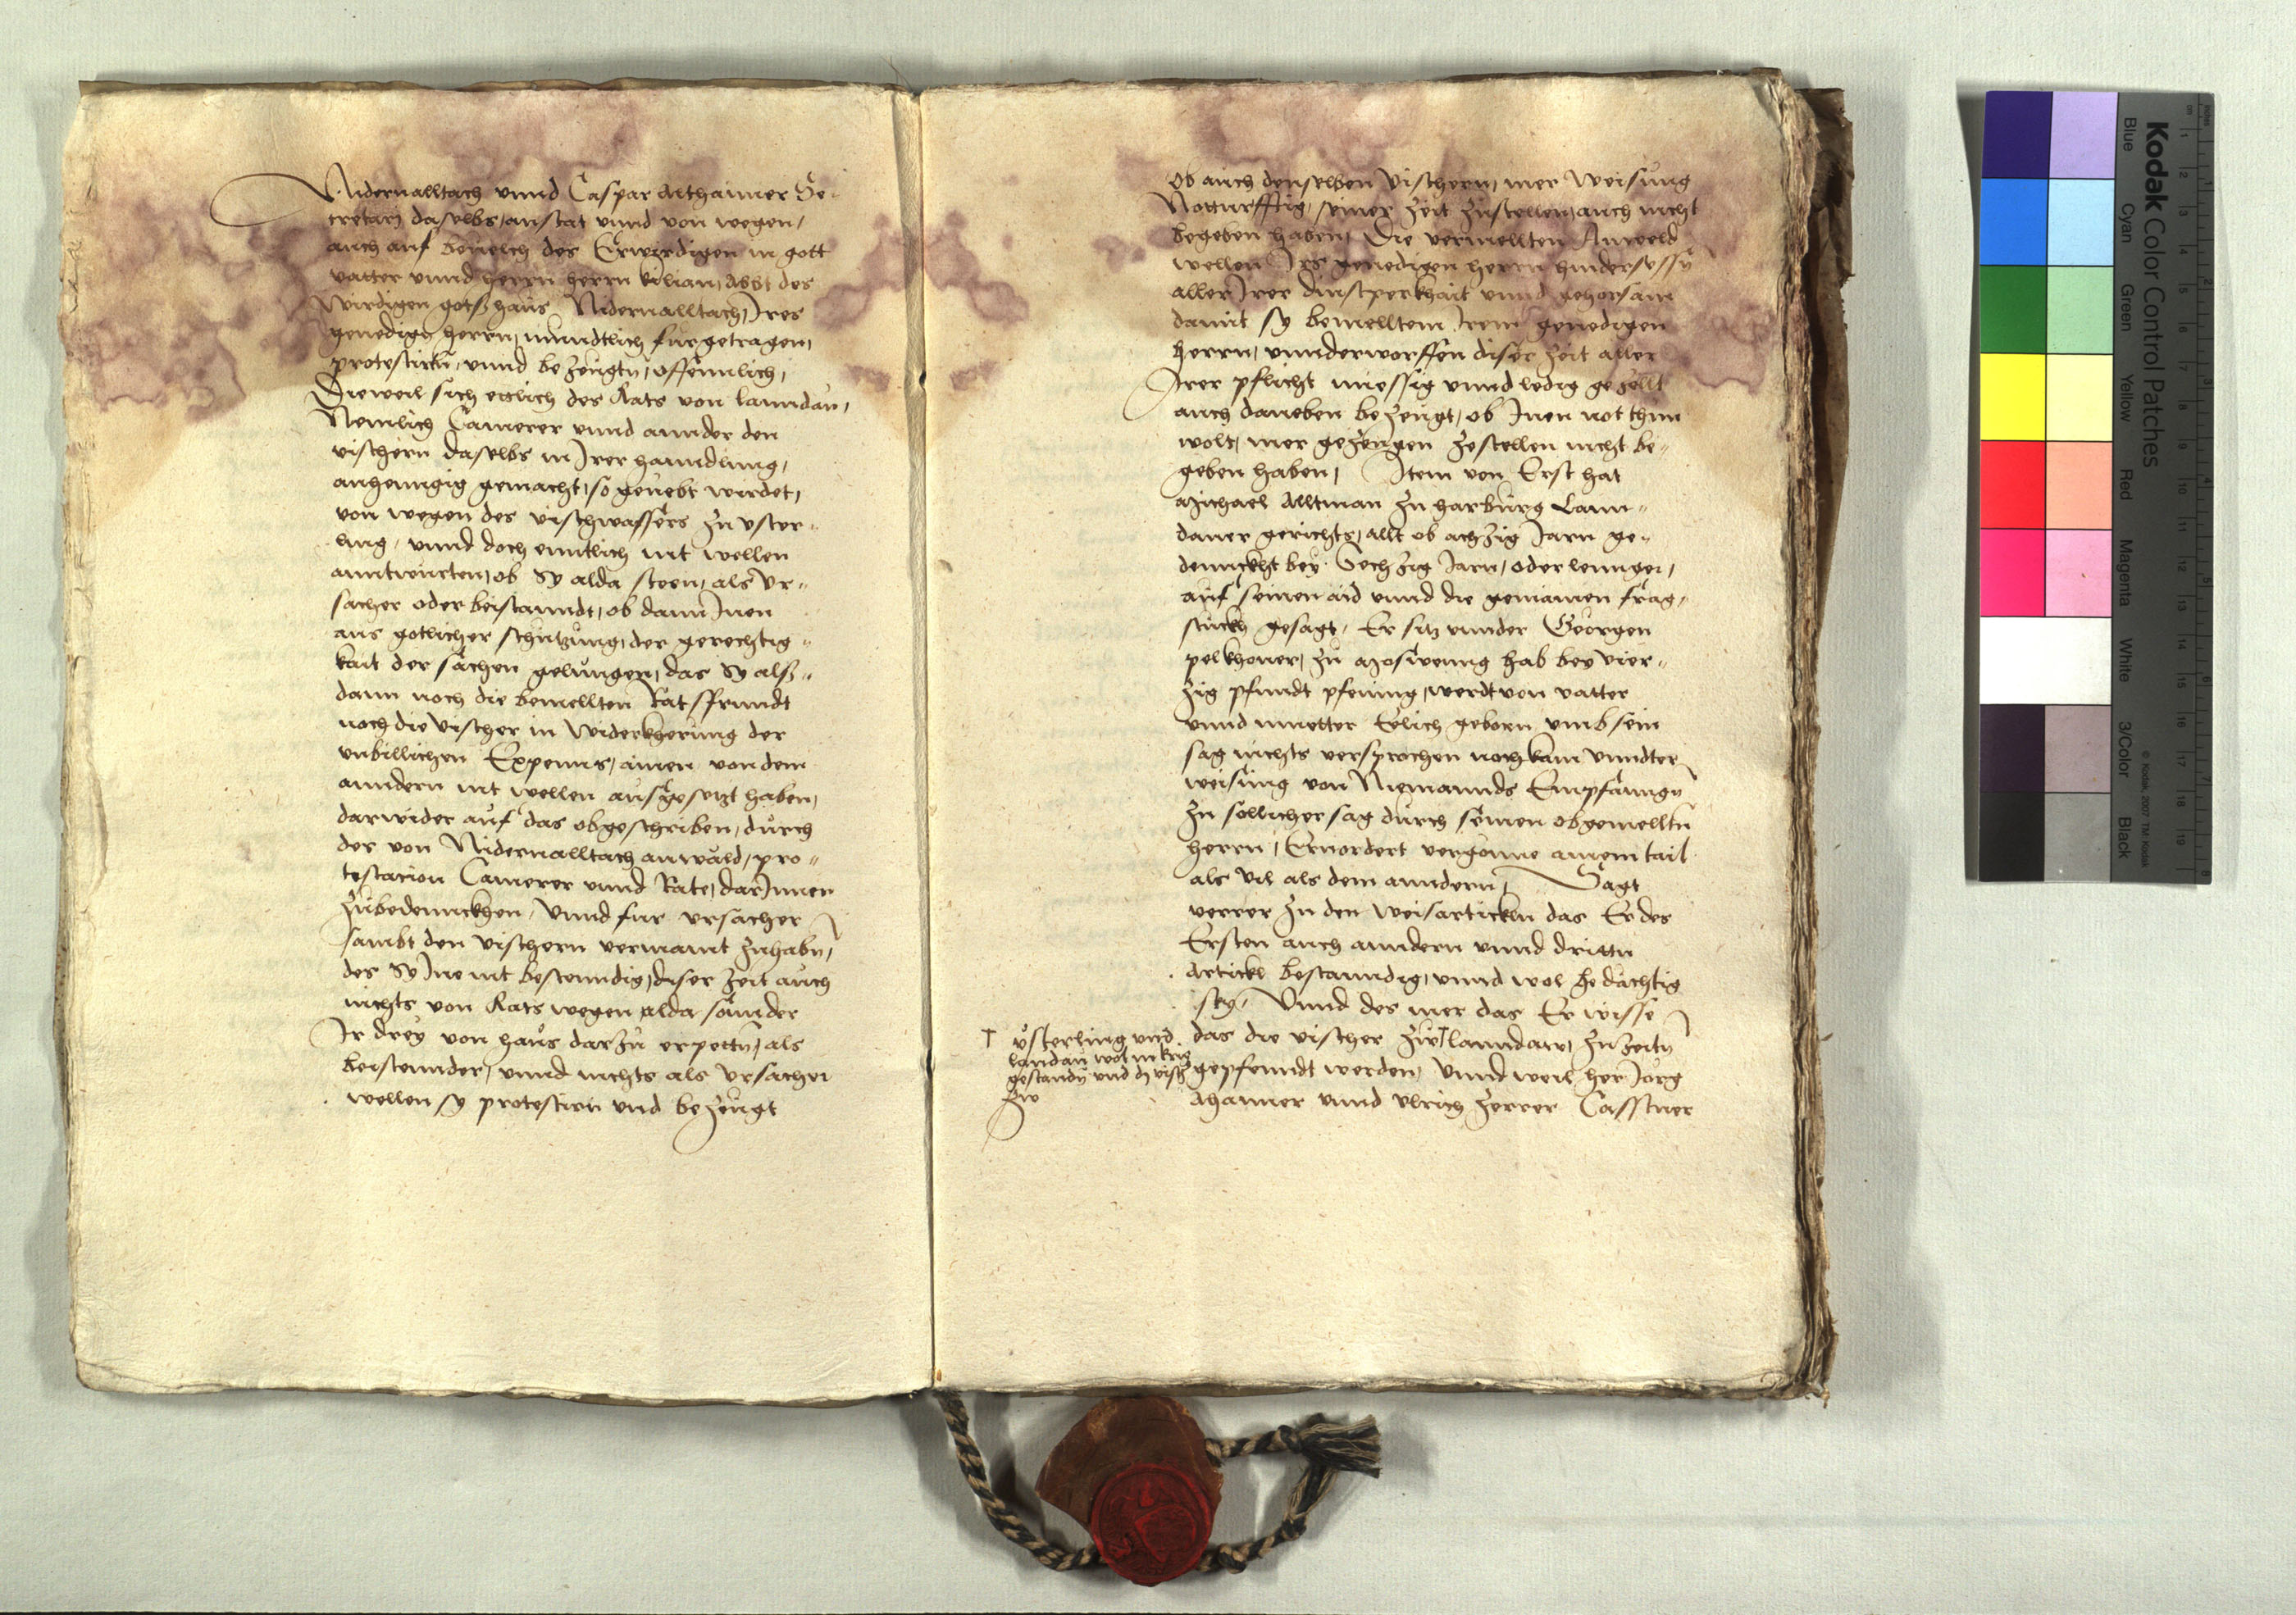 Nidernalltach vnnd Caspar Althaimer Se-
cretarj daselbs, anstat vnnd von wegen,
auch auf beuelch des Erwirdigen in gott
vatter vnnd herrn herrn kilian, Abbt des
wirdigen gotshaus Nidernalltach, Jres
genedign herrn, mundtlich fürgetragen,
protestirtn, vnnd bezeugtn, offennlich,
Dieweil sich etlich des Rats von lanndau,
Nemlich Camerer vnnd annder den
vischern daselbs in Jrer hanndlung,
anhenngig gemacht, so geuebt wirdet,
von wegen des vischwassers zu vster-
ling, vnnd doch enntlich nit wellen
anntwurten, ob Sy alda steen, als vr-
sacher oder beistanndt, ob dann Jnen
aus gotlicher schutzung, der gerechtig-
kait der sachen gelungen, das Sy alß-
dann noch die bemellten Ratsfrundt
noch die vischer in widerkherung der
vnbillichen Expenns, ainen von dem
anndern nit wellen ausgesetzt haben,
darwider auf das obgeschriben, durch
der von Nidernalltach anwäld, pro-
testation Camerer vnnd Rate, darJnnen
zubedennckhen, vnnd fur vrsacher
sambt den vischern vermaint zuhabn,
des Sy Jne nit bestenndig, diser zeit auch
nichts von Rats wegen alda sonnder
Jr drey von haus darzu erpettn, als
beistennder, vnnd nichts als vrsacher
wellen sy protestirn vnd bezeugt
ob auch denselben vischern, mer weisung
Notturfftig, seiner zeit zustellen, auch nicht
begeben haben, Die vermellten Anweld
wellen Jrs genedigen herrn hindersessn
aller Jrer dinstperkhait vnnd gehorsam
damit sy bemelltem Jrem genedigen
herrn, vnnderworffen diser zeit aller
Jrer pflicht miessig vnnd ledig gezellt
auch daneben bezeugt, ob Jnen not thun
wolt, mer gezeugen zestellen nicht be-
geben haben, Jtem von Erst hat
Michael Alltman zu harburg Lann-
dauer gerichts, allt ob achzig Jarn ge-
dennckht bey Sechzig Jarn, oder lennger,
auf seinen aid vnnd die gemainen frag-
stuckh gesagt, Er sitz vnnder Georgen
pelkhouer, zu Mosweng hab bey vier-
zig pfundt pfening, werdt von vatter
vnnd muetter Eelich geborn vmb sein
sag nichts versprochen noch kain vnndter
weisung von Niemannds Empfanngn
zu sollicher sag durch seinen obgemelltn
herrn, Eruordert vergonne ainem tail
als vil als dem anndern, Sagt
verrer zu den weisartickln das Er des
Ersten auch anndern vnnd drittn
Artickl bestanndig, vnnd wol bedächtig
sey, Vnnd des mer das Er wisse
das die vischer zw lanndaw, zu zeitn
gepfenndt werden, Vnnd weil her Jorg
Ahamer vnnd vlrich zerrer Casstner
vsterling vnd
landau wol in krieg
gestandn vnd dj visch
zw